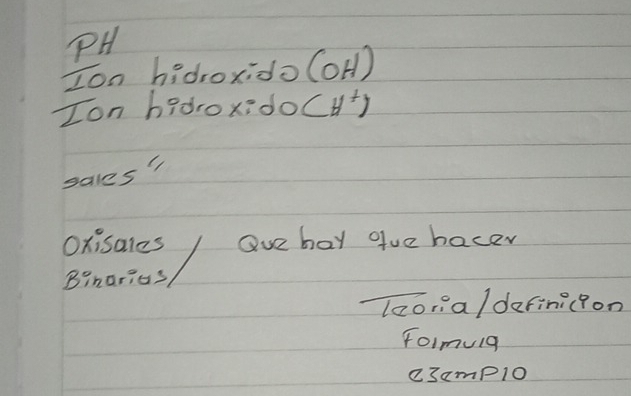 PH
Ion hidroxido (OH)
Ion hidroxido (H⁺)
sales "
Oxisales / Que hay que hacer
Binarias /
Teoria / definicion
Formula
ejemplo